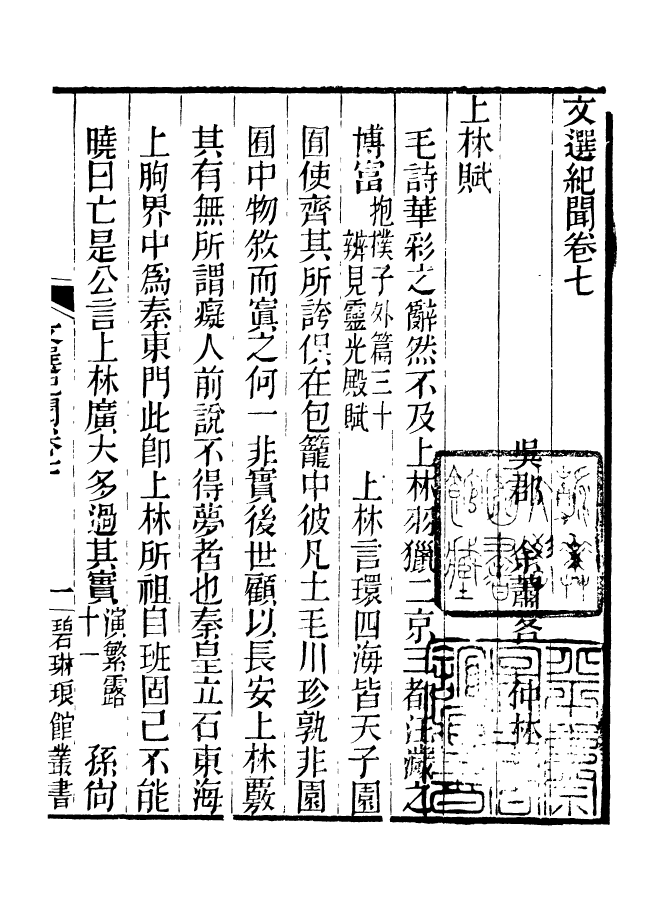 文選紀聞卷七
吳郡　余蕭客　仲林
上林賦
毛詩華彩之辭然不及上林羽獵二京三都汪濊之
博富抱樸子外篇三十辨見靈光殿賦　上林言環四海皆天子園
囿使齊其所誇俱在包籠中彼凡土毛川珍孰非園
囿中物敘而寘之何一非實後世顧以長安上林覈
其有無所謂癡人前說不得夢者也秦皇立石東海
上朐界中爲秦東門此卽上林所祖自班固已不能
曉曰亡是公言上林廣大多過其實演繁露十一　孫尙
文選紀聞卷七　一　碧琳琅館叢書